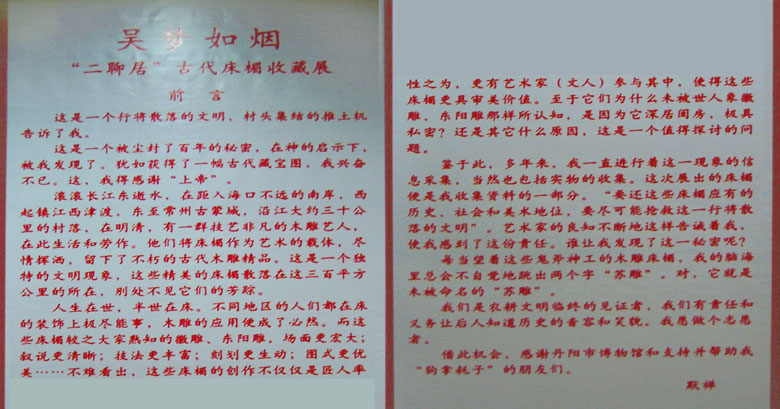 吴梦如烟
“二聊居”古代床楣收藏展
前 言
这是一个行将散落的文明，村头集结的推土机
告诉了我。
这是一个被尘封了百年的秘密，在神的启示下，
被我发现了。犹如获得了一幅古代藏宝图，我兴奋
不已。这，我得感谢“上帝”。
滚滚长江东逝水，在距入海口不远的南岸，西
起镇江西津渡，东至常州古鳘城，沿江大约三十公
里的村落，在明清，有一群技艺非凡的木雕艺人，
在此生活和劳作。他们将床楣作为艺术的载体，尽
情挥洒，留下了不朽的古代木雕精品。这是一个独
特的文明现象，这些精美的床楣散落在这三百平方
公里的所在，别处不见它们的芳踪。
人生在世，半世在床。不同地区的人们都在床
的装饰上极尽能事，木雕的应用便成了必然。而这
些床楣较之大家熟知的徽雕、东阳雕，场面更宏大；
叙说更清晰；技法更丰富；刻划更生动；图式更优
美……不难看出，这些床楣的创作不仅仅是匠人率
性之为，更有艺术家（文人）参与其中，使得这些
床楣更具审美价值。至于它们为什么未被世人象徽
雕、东阳雕那样所认知，是因为它深居闺房，极具
私密？还是其它什么原因，这是一个值得探讨的问
题。
鉴于此，多年来，我一直进行着这一现象的信
息采集，当然也包括实物的收集。这次展出的床楣
便是我收集资料的一部分。“要还这些床楣应有的
历史、社会和美术地位，要尽可能抢救这一行将散
落的文明”。艺术家的良知不断地这样告诫着我，
使我感到了这份责任。谁让我发现了这一秘密呢？
每当望着这些鬼斧神工的木雕床楣，我的脑海
里总会不自觉地跳出两个字“苏雕”。对，它就是
未被命名的“苏雕”。
我们是农耕文明临终的见证者，我们有责任和
义务让后人知道历史的音容和笑貌。我愿做个志愿
者。
借此机会，感谢丹阳市博物馆和支持并帮助我
“狗拿耗子”的朋友们。
默禅